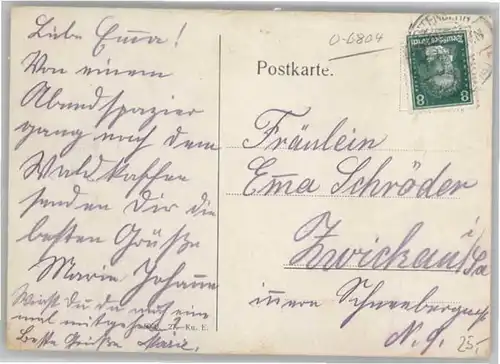 Liebe Emma!
Von einem
Abendspazier
gang nach dem
Waldkaffee
senden Dir die
besten Grüße
Marie Johanne
Wirst Du da auch ein
mal mitgehen?
Beste Grüße Marie.
Ku. E.
0-6804
Postkarte.
Deutsches Reich
8 8
Fräulein
Emma Schröder
Zwickau i/Sa
innere Schneebergerstr
N. 9.
25,-